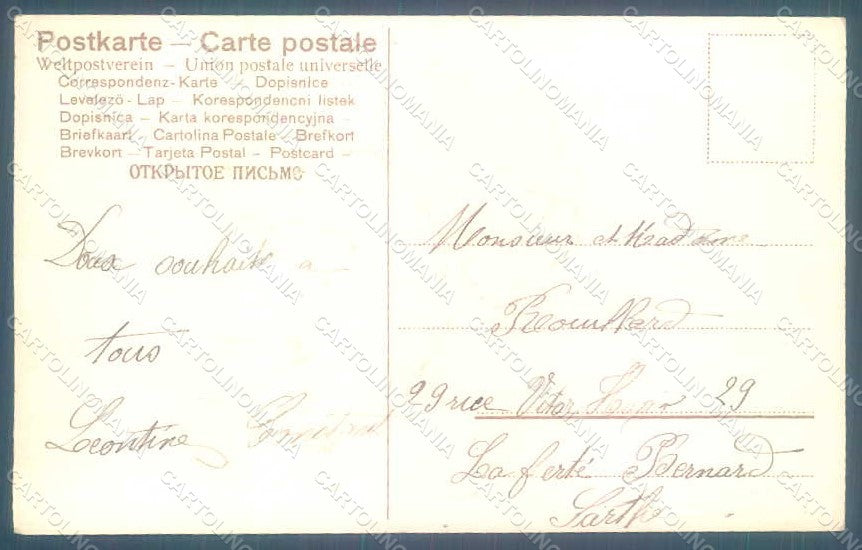 Postkarte — Carte postale
Weltpostverein — Union postale universelle
Correspondenz-Karte — Dopisnice —
Levelező-Lap — Korespondencni listek
Dopisnica — Karta korespondencyjna —
Briefkaart — Cartolina Postale — Brefkort
Brevkort — Tarjeta Postal — Postcard —
ОТКРЫТОЕ ПИСЬМО
Doux souhaits a
tous
Leontine
Monsieur et Madame
Rouillard
29 rue Victor Hugo 29
La ferté Bernard
Sarthe
CARTOLINOMANIA